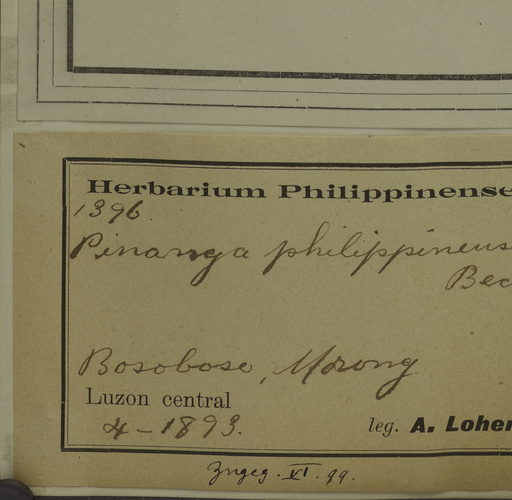 Herbarium Philippinense
1396.
Pinanga philippinens
Bec
Bosobose, Morong
Luzon central
4-1893.
leg. A. Loher
Zngeg. VI. 99.